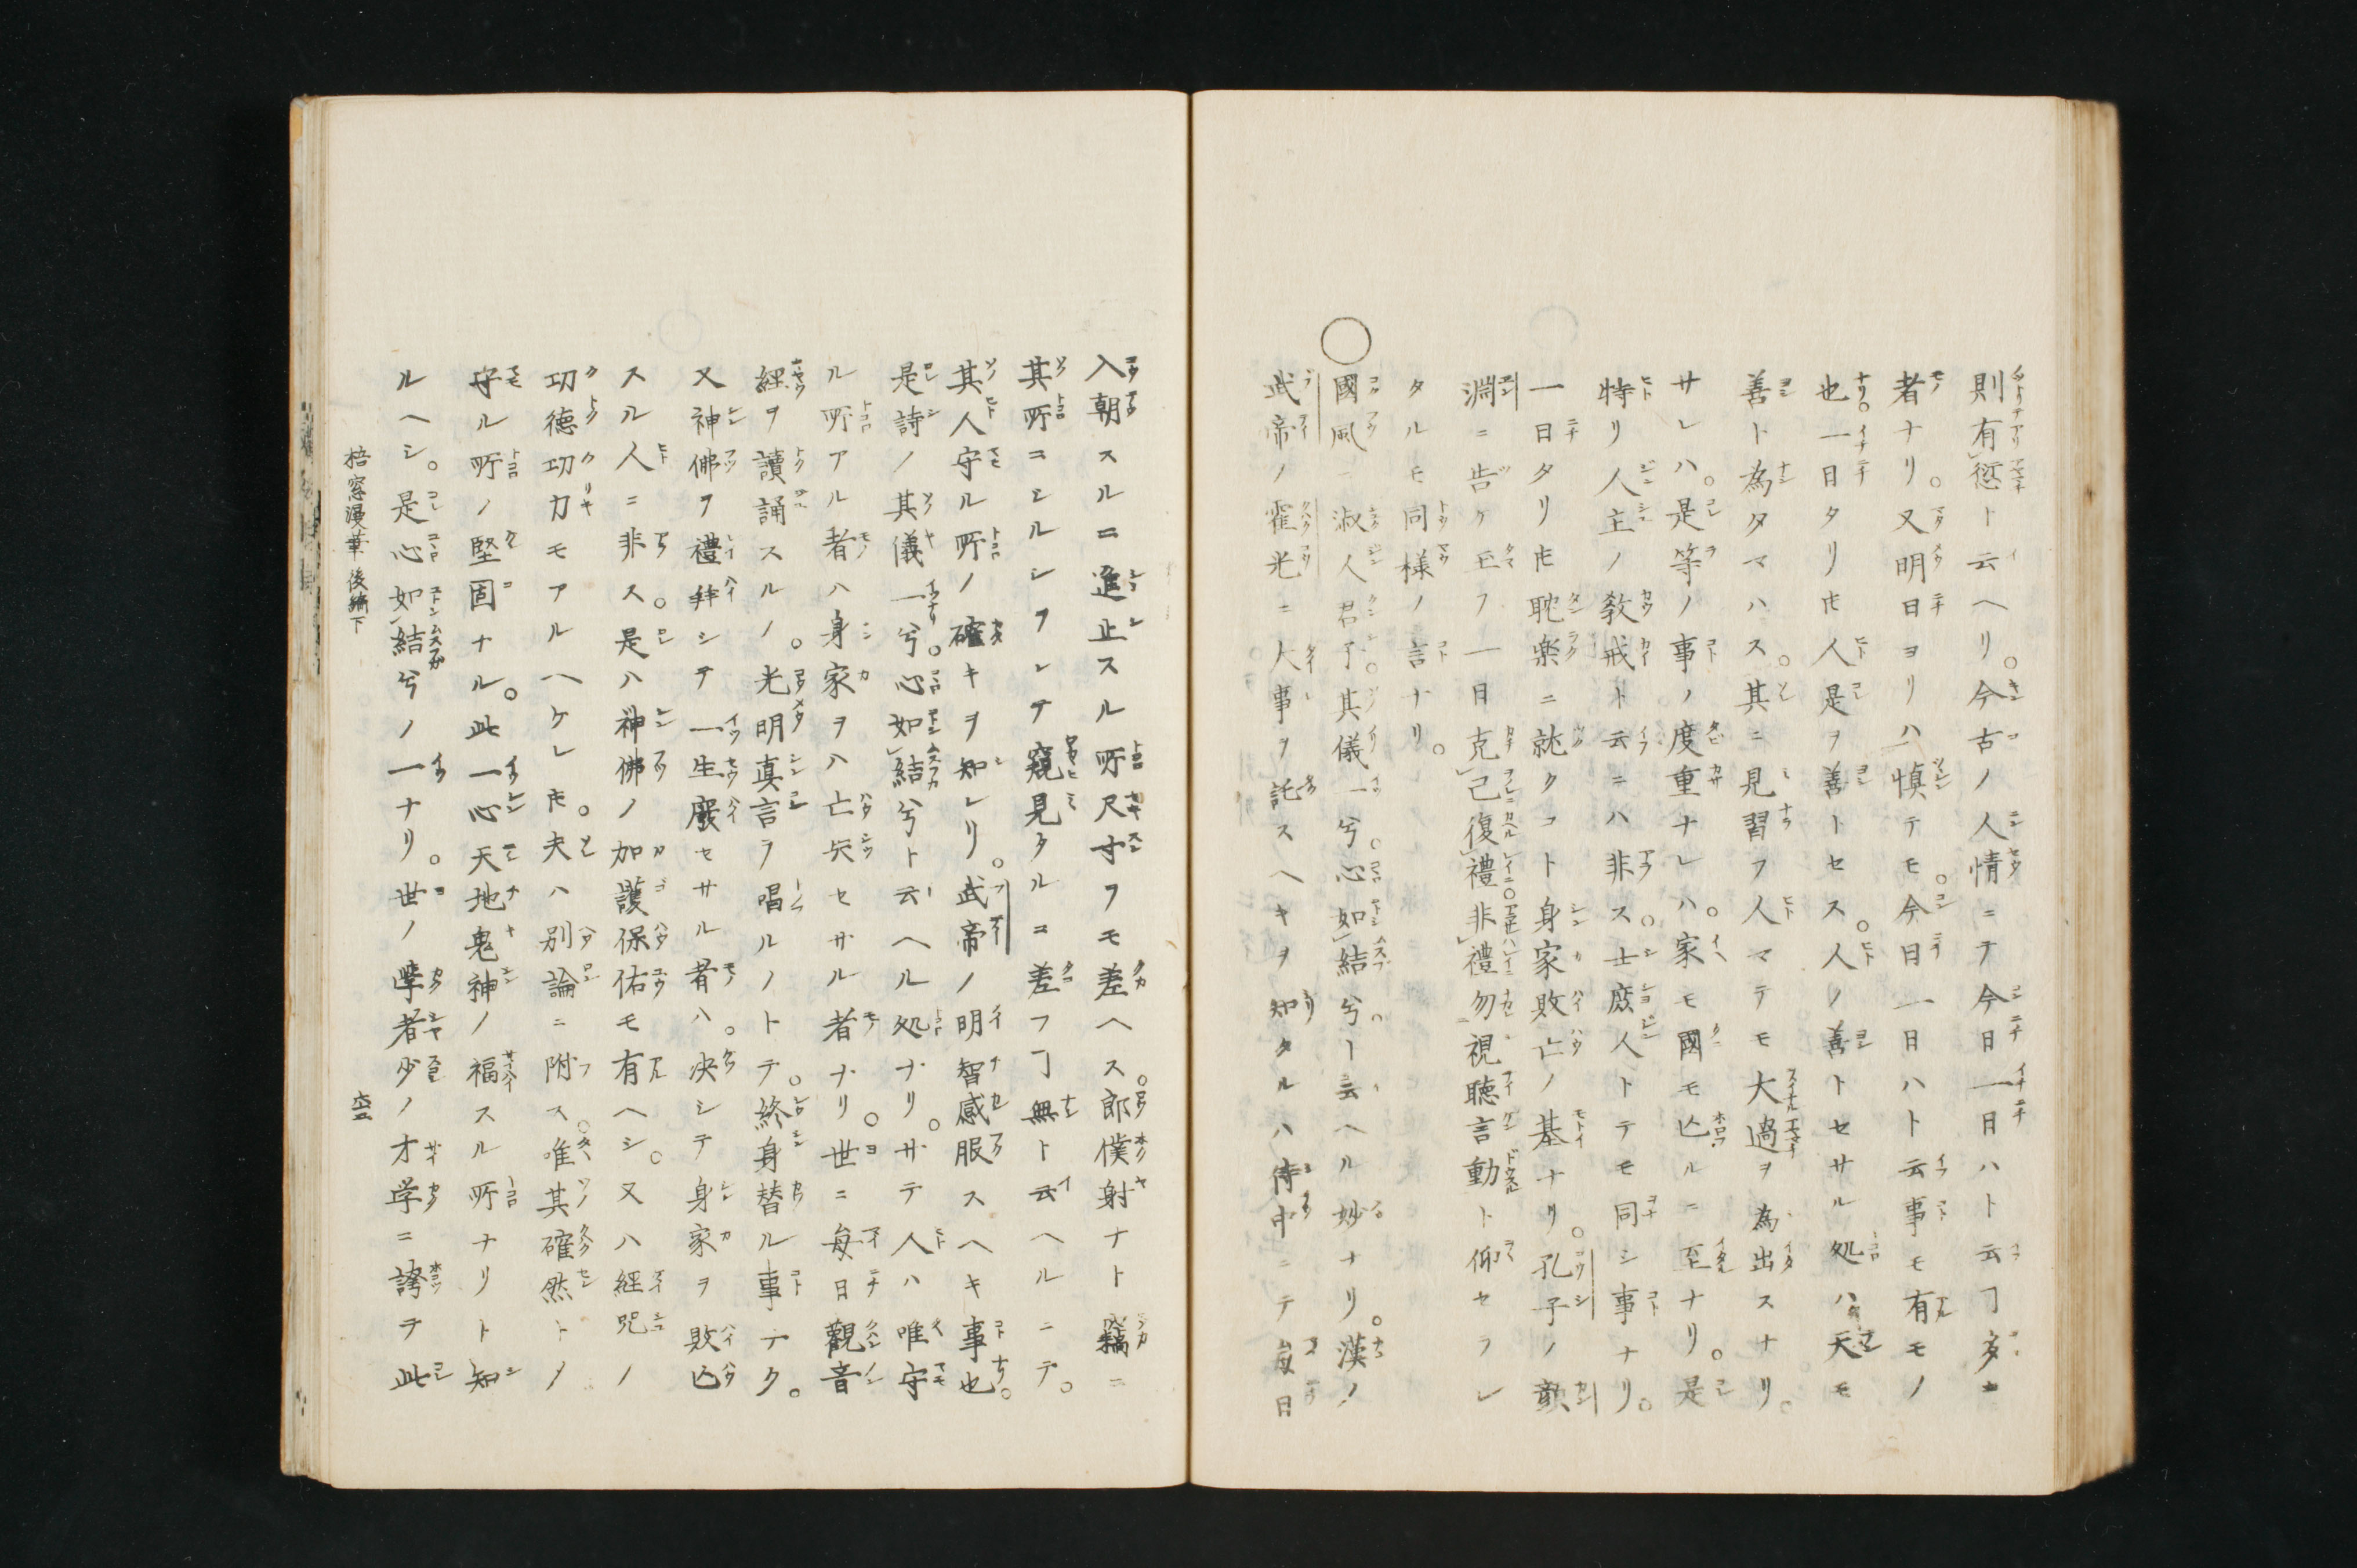 則有愆ト云ヘリ。今古ノ人情ニテ今日一日ハト云ヿ多キ
者ナリ。又明日ヨリハ慎テモ今日一日ハト云事モ有モノ
也。一日タリ𪜈人是ヲ善トセス。人ノ善トセサル処ハ天モ
善ト為タマハス。其ニ見習フ人マテモ大過ヲ為出スナリ。
サレハ。是等ノ事ノ度重ナレハ。家モ國モ亾ルニ至ナリ。是
特リ人主ノ教戒ト云ニハ非ス。士庶人トテモ同シ事ナリ。
一日タリ𪜈耽楽ニ就クコト身家敗亡ノ基ナリ。孔子ノ顔
淵ニ告ケ玉フ一日克己復禮非禮勿視聴言動ト仰セラレ
タルモ同様ノ言ナリ。
○國風ニ淑人君子。其儀一兮。心如結兮。ト云ヘル妙ナリ。漢ノ
武帝ノ霍光ニ大事ヲ託スヘキヲ知タルハ侍中ニテ毎日
入朝スルニ進止スル所尺寸ヲモ差ヘス。郎僕射ナト竊ニ
其所ニシルシヲシテ窺見タルニ差フヿ無ト云ヘルニテ。
其人守ル所ノ確キヲ知レリ。武帝ノ明智感服スヘキ事也。
是詩ノ其儀一兮。心如結兮ト云ヘル処ナリ。サテ人ハ唯守
ル所アル者ハ身家ヲハ亡失セザル者ナリ。世ニ毎日觀音
經ヲ讀誦スルノ。光明真言ヲ唱ルノトテ。終身替ル事ナク。
又神佛ヲ禮拜シテ一生廢セサル者ハ。决シテ身家ヲ敗亾
スル人ニ非ス。是ハ神佛ノ加護保佑モ有ヘシ。又ハ經咒ノ
功德功力モアルヘケレ𪜈。夫ハ别論ニ附ス。唯其確然トノ
守ル所ノ堅固ナル。此一心天地鬼神ノ福スル所ナリト知
ルヘシ。是心如結兮ノ一ナリ。世ノ學者少ノオ学ニ誇テ此
梧窓漫筆後編下